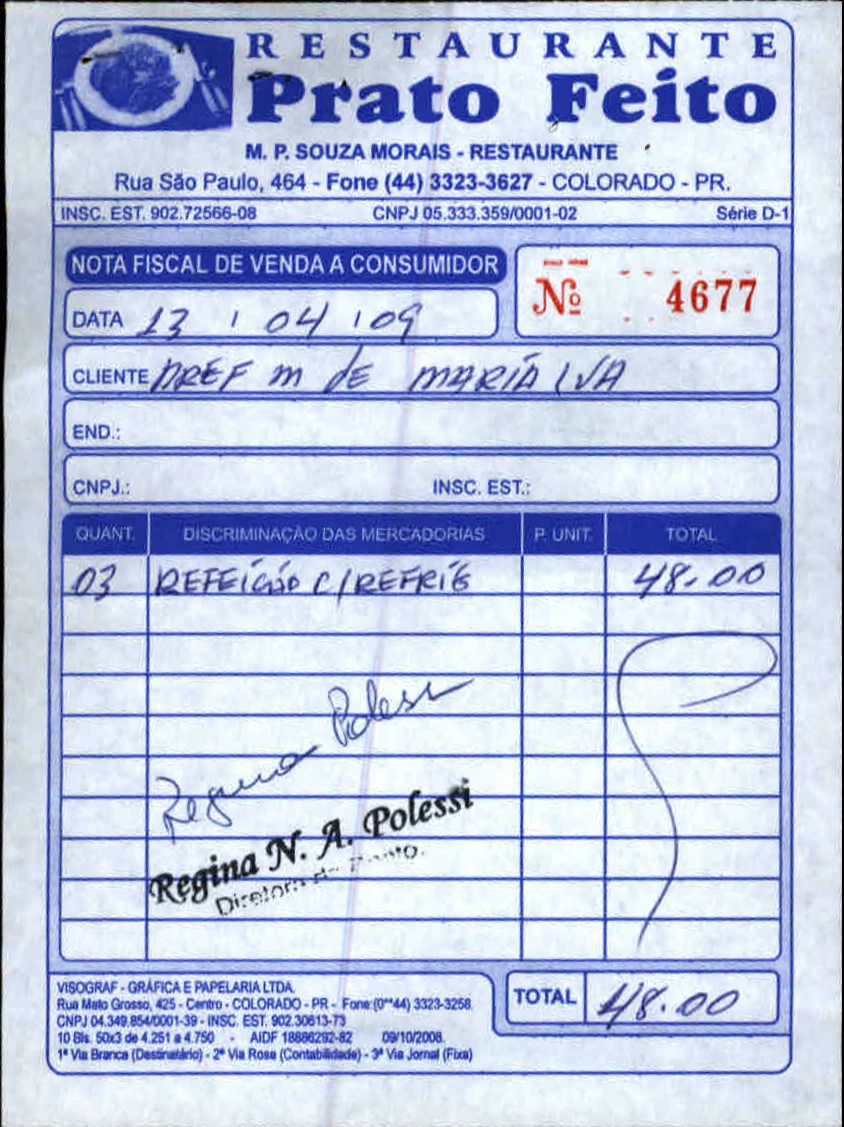 RESTAURANTE
Prato Feito
M. P. SOUZA MORAIS - RESTAURANTE
Rua São Paulo, 464 - Fone (44) 3323-3627 - COLORADO - PR.
INSC. EST. 902.72566-08 CNPJ 05.333.359/0001-02 Série D-1
NOTA FISCAL DE VENDA A CONSUMIDOR
Nº 4677
DATA 13 / 04 / 09
CLIENTE PREF M DE MARIALVA
END.:
CNPJ.: INSC. EST.:
QUANT. DISCRIMINAÇÃO DAS MERCADORIAS P. UNIT. TOTAL
03 REFEIÇÃO C/REFRIG 48.00
Regina Polessi
Regina N. A. Polessi
Diretora
VISOGRAF - GRÁFICA E PAPELARIA LTDA.
Rua Mato Grosso, 425 - Centro - COLORADO - PR - Fone:(0**44) 3323-3258
CNPJ 04.349.854/0001-39 - INSC. EST. 902.30613-73
10 Bls. 50x3 de 4.251 a 4.750 - AIDF 18886292-82 09/10/2008.
1ª Via Branca (Destinatário) - 2ª Via Rosa (Contabilidade) - 3ª Via Jornal (Fixa)
TOTAL 48.00